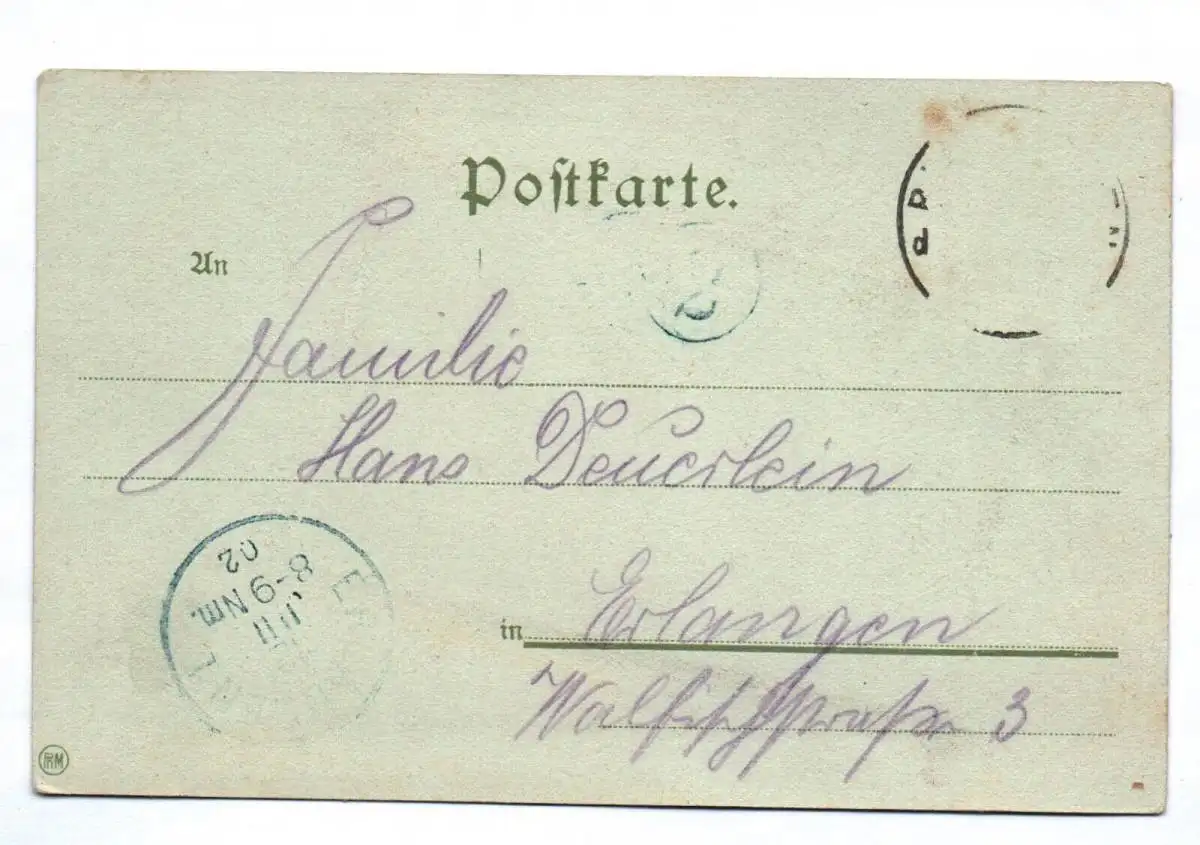 Postkarte.
An
Familie
Hans Deuerlein
in Erlangen
Walfischstraße 3
8-9 Nm.
02